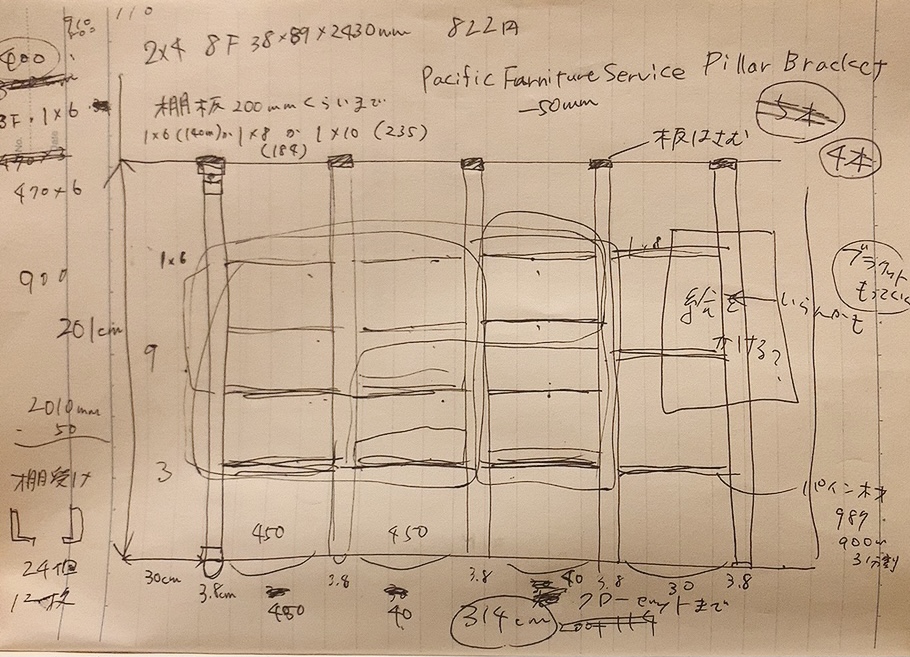 910
110
2x4 8F 38×89×2430mm 822円
400
Pacific Farniture Service Pillar Bracket
-50mm
5本
4本
棚板200mmくらいまで
1x6(140m)か 1×8 か 1×10 (235)
(184)
板はさむ
3F.1×6
470×6
1×6
1×8
ブラケット
もってくい
絵を
かける?
いらんかも
900
201cm
9
2010mm
- 50
3
棚受け
24個
12枚
パイン木材
989
900m
3分割
450
450
30cm
3.8cm
3.8
3.8
40
3.8
30
3.8
480
40
314cm
クローゼットまで